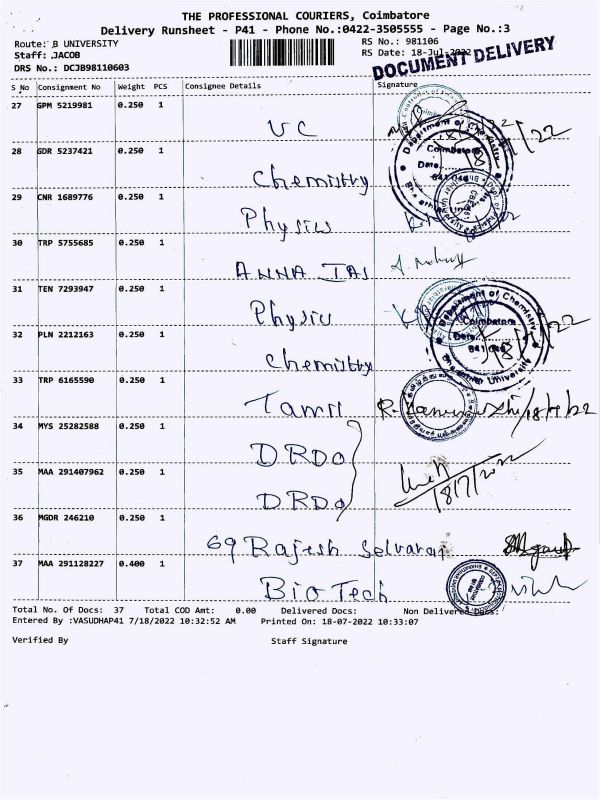 THE PROFESSIONAL COURIERS, Coimbatore
Delivery Runsheet - P41 - Phone No.:0422-3505555 - Page No.:3
Route: B UNIVERSITY
RS No.: 981106
Staff: JACOB
RS Date: 18-Jul-2022
DRS No.: DCJB98110603
DOCUMENT DELIVERY
S_No Consignment No Weight PCS Consignee Details Signature
27 GPM 5219981 0.250 1
UC
28 GDR 5237421 0.250 1
Chemistry
29 CNR 1689776 0.250 1
Physics
30 TRP 5755685 0.250 1
ANNA IAS
31 TEN 7293947 0.250 1
Physics
32 PLN 2212163 0.250 1
Chemistry
33 TRP 6165590 0.250 1
Tamil 18/7/22
34 MYS 25282588 0.250 1
DRDO
35 MAA 291407962 0.250 1
DRDO 18/7/2022
36 MGDR 246210 0.250 1
69 Rajesh Selvaraj
37 MAA 291128227 0.400 1
BioTech
Department of Chemistry
Coimbatore
Date
641 046
Bharathiar University
Department of Chemistry
Coimbatore
Date
641 046
Bharathiar University
Total No. Of Docs: 37 Total COD Amt: 0.00 Delivered Docs: Non Delivered Docs:
Entered By :VASUDHAP41 7/18/2022 10:32:52 AM Printed On: 18-07-2022 10:33:07
Verified By Staff Signature